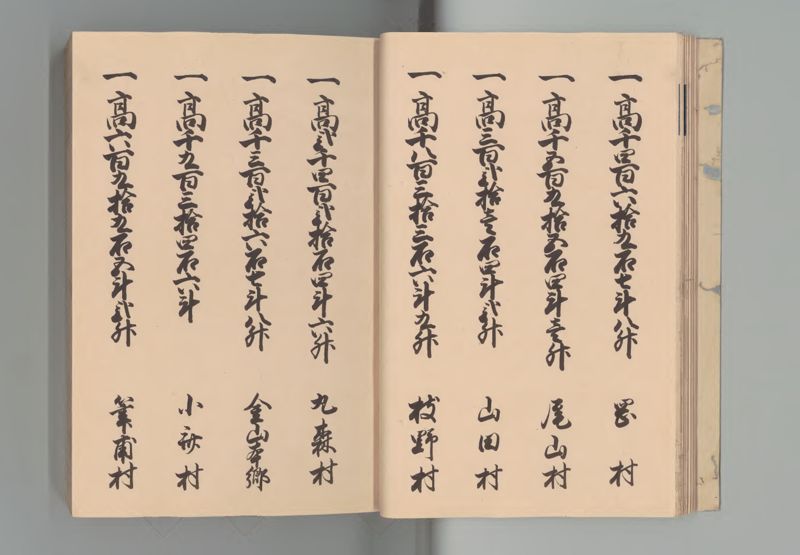 一高千四百六拾九石七斗八升 岡村
一高千五百九拾五石四斗壱升 尾山村
一高三百弐拾壱石四斗弐升 山田村
一高千八百三拾三石六斗九升 枝野村
一高弐千四百弐拾石四斗六升 丸森村
一高千三百弐拾六石七斗八升 金山本郷
一高千九百三拾四石六斗 小斎村
一高六百九拾九石五斗弐升 筆甫村